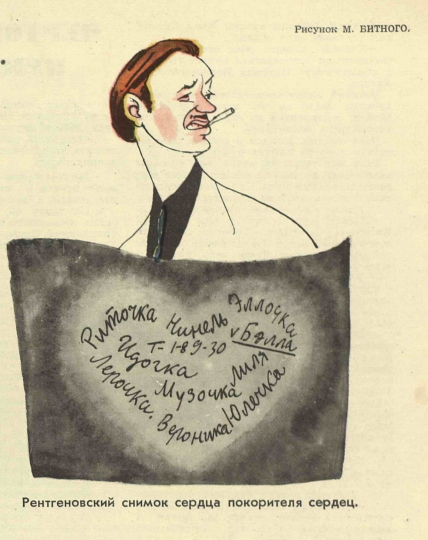 Рисунок М. БИТНОГО.
Риточка
Нинель
Эллочка
Т-189-30
v Бэлла
Идочка
Лерочка.
Музочка
Лиля
Вероника
Юлечка
Рентгеновский снимок сердца покорителя сердец.